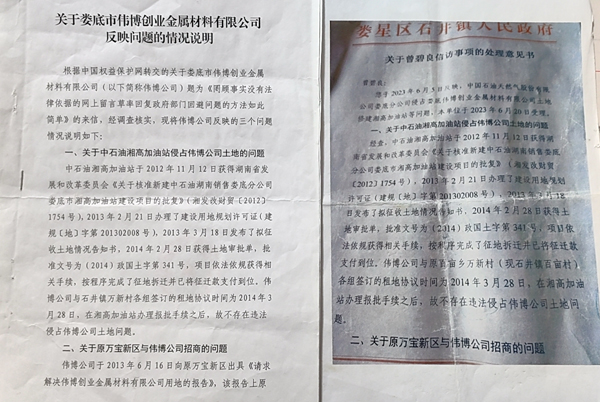 关于娄底市伟博创业金属材料有限公司
反映问题的情况说明
根据中国权益保护网转交的关于娄底市伟博创业金属
材料有限公司（以下简称伟博公司）题为《罔顾事实没有法
律依据的网上留言草率回复政府部门回避问题的方法如此
简单》的来信，经调查核实，现将伟博公司反映的三个问题
情况说明如下：
一、关于中石油湘高加油站侵占伟博公司土地的问题
中石油湘高加油站于 2012 年 11 月 12 日获得湖南省发
展和改革委员会《关于核准新建中石油湖南销售娄底分公司
娄底市湘高加油站建设项目的批复》（湘发改财贸【2012】
1754 号），2013 年 2 月 21 日办理了建设用地规划许可证（建
规［地］字第 201302008 号），2013 年 3 月 18 日发布了拟征
收土地情况告知书，2014 年 2 月 28 日获得土地审批单，批
准文号为（2014）政国土字第 341 号，项目依法依规获得相
关手续，按程序完成了征地拆迁并已将征迁款支付到位。伟
博公司与石井镇万新村各组签订的租地协议时间为 2014 年 3
月 28 日，在湘高加油站办理报批手续之后，故不存在违法
侵占伟博公司土地问题。
二、关于原万宝新区与伟博公司招商的问题
伟博公司于 2013 年 6 月 16 日向原万宝新区出具《请求
解决伟博创业金属材料有限公司用地的报告》，该报告上原
娄星区石井镇人民政府
关于曾碧良信访事项的处理意见书
您于 2023 年 6 月 5 日反映，中国石油天然气股份有限
公司娄底分公司侵占娄底伟博创业金属材料有限公司土地
搭建湘高加油站等问题，本单位于 2023 年 6 月 20 日受理。
一、关于中石油湘高加油站侵占伟博公司土地的问题
经查，中石油湘高加油站于 2012 年 11 月 12 日获得湖
南省发展和改革委员会《关于核准新建中石油湖南销售娄底
分公司娄底市湘高加油站建设项目的批复》（湘发改财贸
【2012】1754 号），2013 年 2 月 21 日办理了建设用地规划
许可证（建规［地］字第 201302008 号），2013 年 3 月 18
日发布了拟征收土地情况告知书，2014 年 2 月 28 日获得土
地审批单，批准文号为（2014）政国土字第 341 号，项目依
法依规获得相关手续，按程序完成了征地拆迁并已将征迁款
支付到位。伟博公司与原百亩乡万新村（现石井镇百亩村）
各组签订的租地协议时间为 2014 年 3 月 28 日，在湘高加油
站办理报批手续之后，故不存在违法侵占伟博公司土地问
题。
二、关于原万宝新区与伟博公司招商的问题